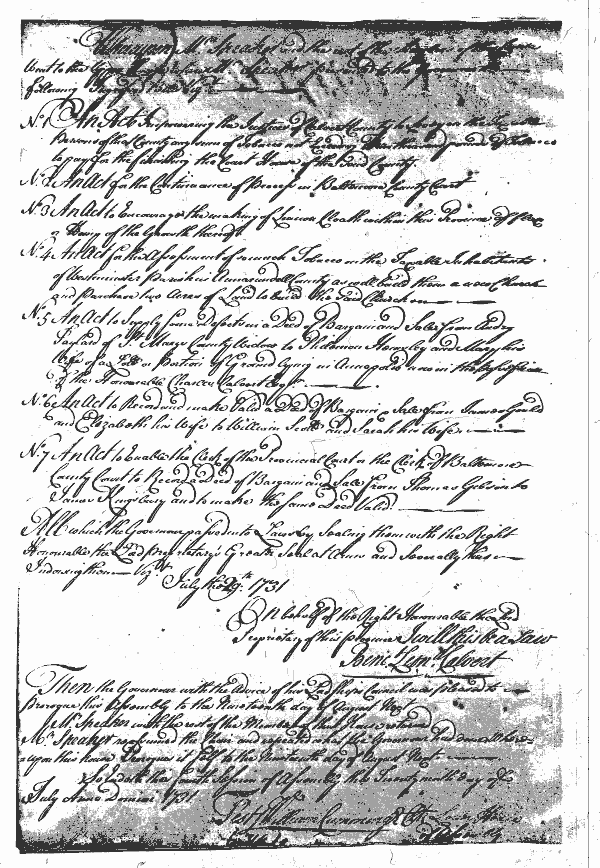 Whereupon Mr. Speaker and the rest of the Members of the House
went to the Upper House where Mr. Speaker presented to the Governor
following Engrossed Bills Vizt.
No. 1 An Act Impowering the Justices of Calvert County to levy on the Taxable
Persons of that County any sum of Tobacco not Exceeding pounds of Tobacco
to pay for the finishing the Court House of the said County
No. 2 An Act for the Continuance of Process in Baltimore County Court
No. 3 An Act to Encourage the making of Linnen Cloath within this Province of flax
or Hemp of the Growth thereof
No. 4 An Act for the Assessment of so much Tobacco on the Taxable Inhabitants
of Westminster Parish in Annarundell County as will build them a new Church
and purchase two Acres of Land to build the said Church on
No. 5 An Act to Supply some Defects in a Deed of Bargain and Sale from Audry
Taylard of St. Marys County Widow to Philemon Hemsley and Mary his
Wife of a Lott or Portion of Ground lying in Annapolis now in the Possession
of the Honourable Charles Calvert Esqr.
No. 6 An Act to Record and make Valid a Deed of Bargain & Sale from James Gould
and Elizabeth his Wife to William Scott and Sarah his Wife
No. 7 An Act to Enable the Clerk of the Provincial Court or the Clerk of Baltimore
County Court to Record a Deed of Bargain and Sale From Thomas Gibson to
James Kingsbury and to make the same Deed Valid
All which the Governour passed into Laws by Sealing them with the Right
Honourable the Lord Proprietary's Greate Seal at Arms and Severally thus
Indorsing them Vizt.
July the 29th. 1731
On behalf of the Right Honourable the Lord
Proprietary of this province I will this be a Law
Benj. Leond. Calvert
Then the Governour with the Advice of his Lordships Council was pleased to
Prorogue this Assembly to the Nineteenth day of August Next
Mr. Speaker with the rest of the Members of this House returned
Mr. Speaker resumed the Chair and reported that his Governour had
upon this house Prorogued it self to the Nineteenth day of August Next
So Ends this fourth Session of Assembly this Twenty ninth day of
July Anno Domini 1731.